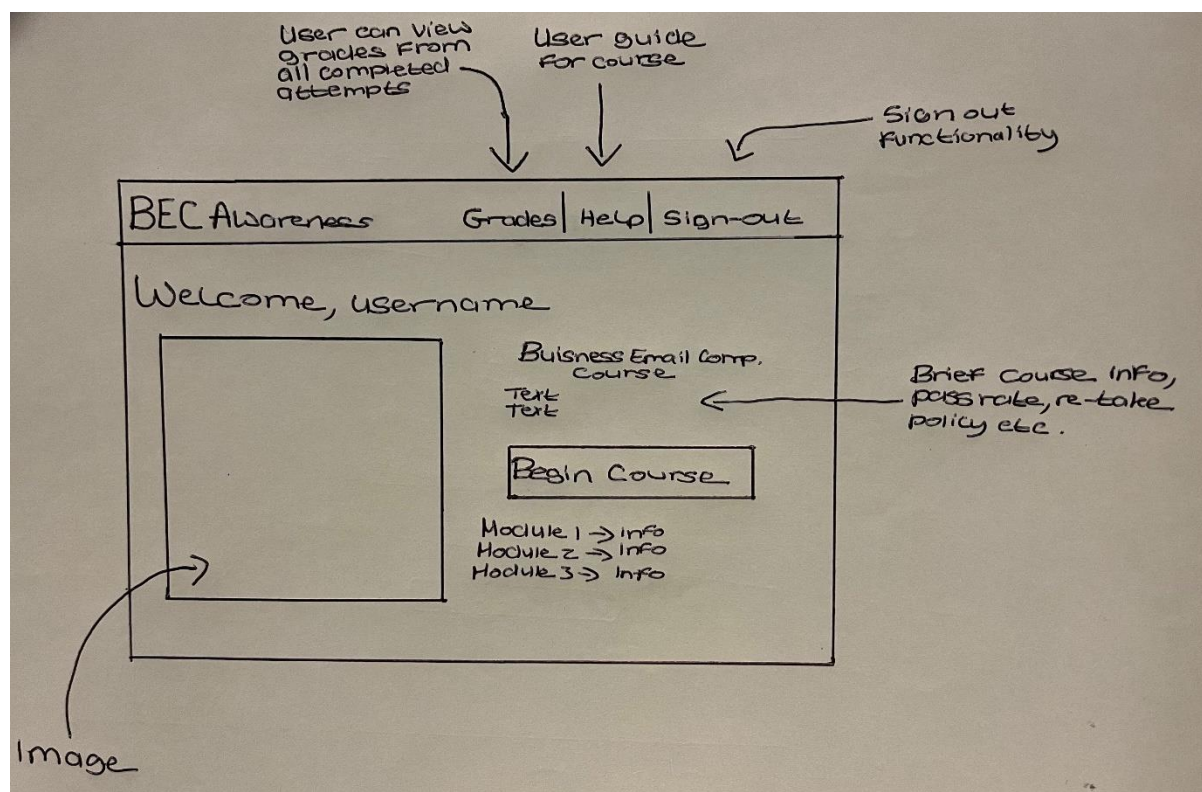 User can view
grades from
all completed
attempts
User guide
for course
Sign out
functionality
BEC Awareness
Grades | Help | Sign-out
Welcome, username
Buisness Email Comp.
Course
Text
Text
Brief course info,
pass rate, re-take
policy etc.
Begin Course
Module 1 → info
Module 2 → info
Module 3 → info
Image